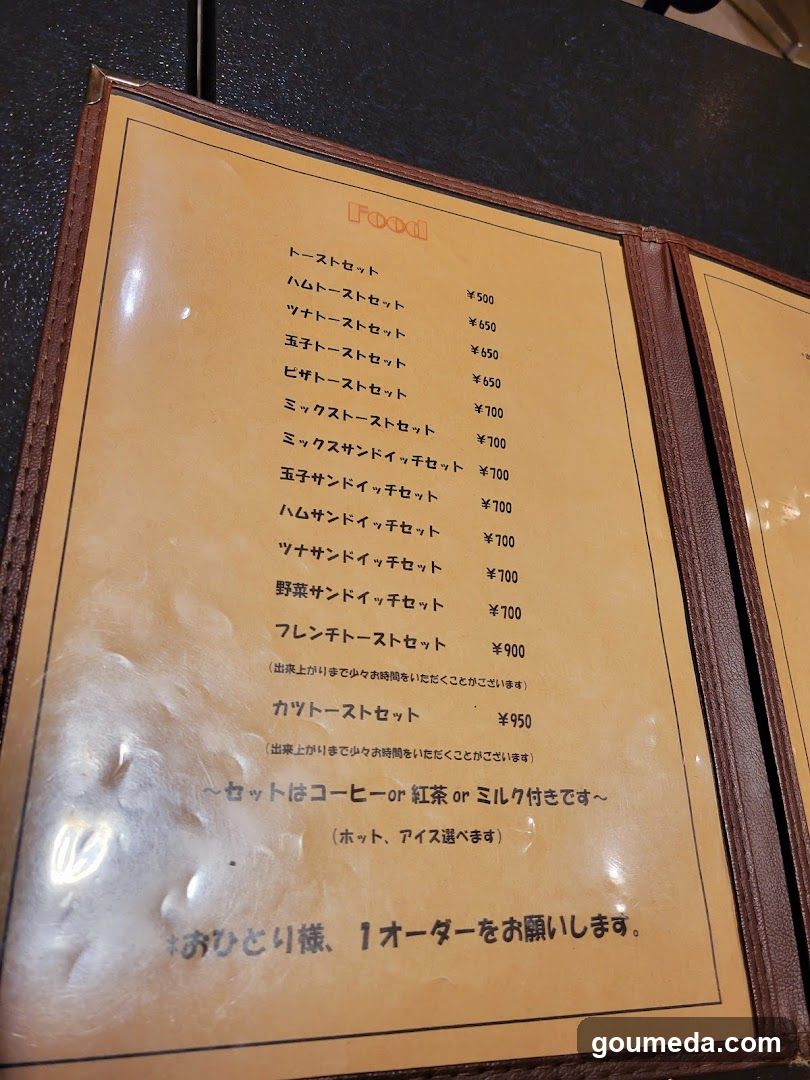 Food
トーストセット ¥500
ハムトーストセット ¥650
ツナトーストセット ¥650
玉子トーストセット ¥650
ピザトーストセット ¥700
ミックストーストセット ¥700
ミックスサンドイッチセット ¥700
玉子サンドイッチセット ¥700
ハムサンドイッチセット ¥700
ツナサンドイッチセット ¥700
野菜サンドイッチセット ¥700
フレンチトーストセット ¥900
(出来上がりまで少々お時間をいただくことがございます)
カツトーストセット ¥950
(出来上がりまで少々お時間をいただくことがございます)
～セットはコーヒーor 紅茶 or ミルク付きです～
(ホット、アイス選べます)
*おひとり様、1オーダーをお願いします。
goumeda.com